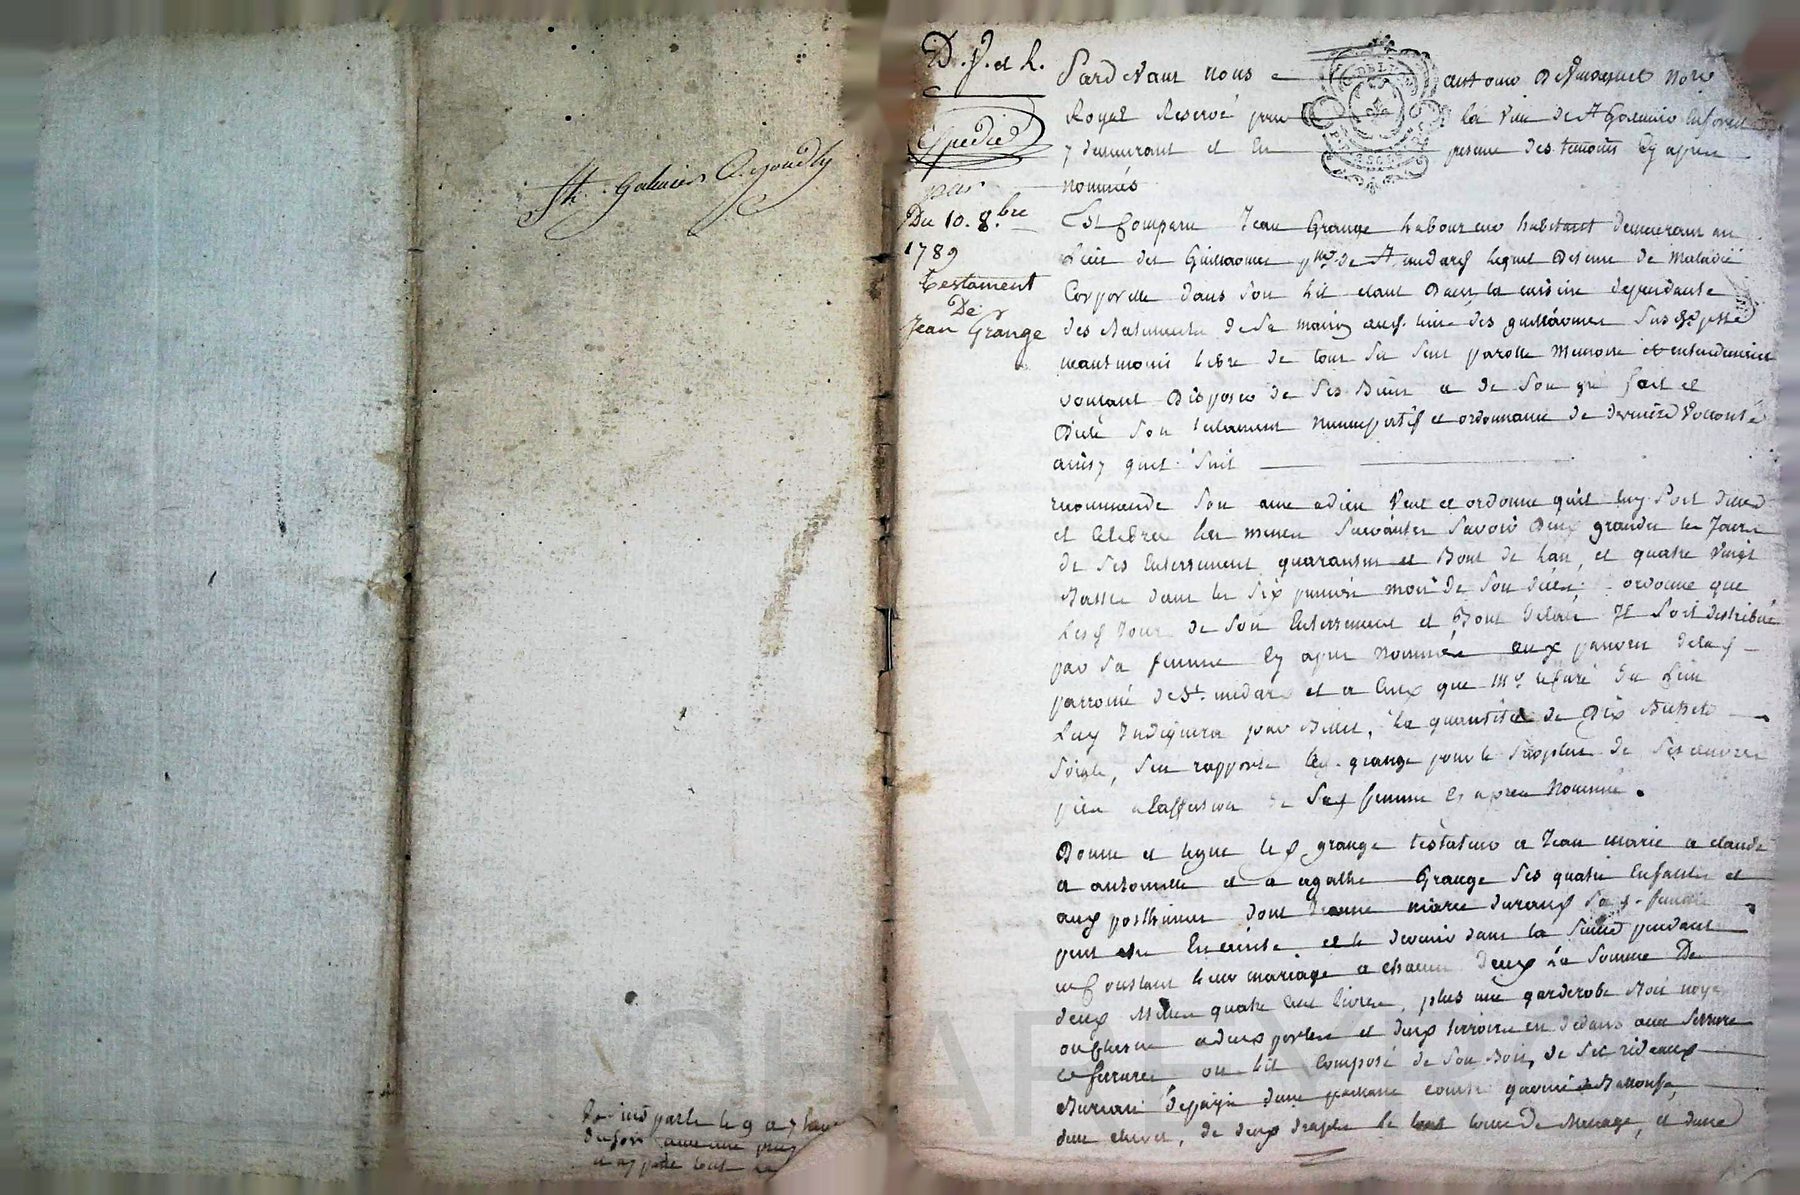 St. Galmier
D. J. et h.
Expedié
par
Du 10. 8.bre
1789
testament
De
Jean Grange
Pardevant nous antoine Notre
Royal Reservé pour la Ville de St Galmier en forest
y demeurant et en presence des temoins Cy apres
nommés
Est Comparu Jean Grange Laboureur habitant demeurant au
Lieu des Guillaumes psse de St medard lequel Detenu de maladie
Corporelle dans son Lit etant Dans la cuisine dependante
des Batiments de sa maison audt lieu des guillaumes susdte psse
neantmoins libre de tous ses sens parolle memoire et entendement
voulant Disposer de ses Biens a de son gré fait et
Dicté son testament nuncupatif et ordonnance de derniere Volonté
ainsy quil suit
recommande son ame adieu Veut et ordonne quil luy soit dittes
et Celebrée les messes suivantes savoir Deux grandes le Jour
de ses Enterrement quarantin et Bout de lan, et quatre Vingt
Basses dans les six premiers mois de son deces. ordonne que
Lesd Jour de son Enterrement et Bout delan Il soit distribué
par sa femme Cy apres Nommée aux pauvres delad
parroisse de St. medard et a Ceux que Mr. le Curé du Lieu
Luy Indiquera par Billet, la quantité de Dix Bichets
Soigle, sen rapporte led. grange pour le surplus de ses œuvres
pies a laffection de sad femme Cy apres Nommée.
Donne et legue led grange testateur a Jean marie a claude
a antoinette et a agathe Grange ses quatre Enfants et
aux posthumes dont Jeanne marie durand sad. femme
peut etre Enceinte et le devenir dans la suitte pendant
et Constant leur mariage a chacun Deux La somme De
deux Milles quatre cent livres, plus une garderobe Boi noyer
ou Chesne a deux portes et deux tirroires en dedans avec serrure
et ferrures un lit Composé de son Bois, de ses rideaux
Bureau depaÿs dune paillasse couette garnie de Ballouffe,
dun chevet, de deux draps le tout toile de Menage, et dune